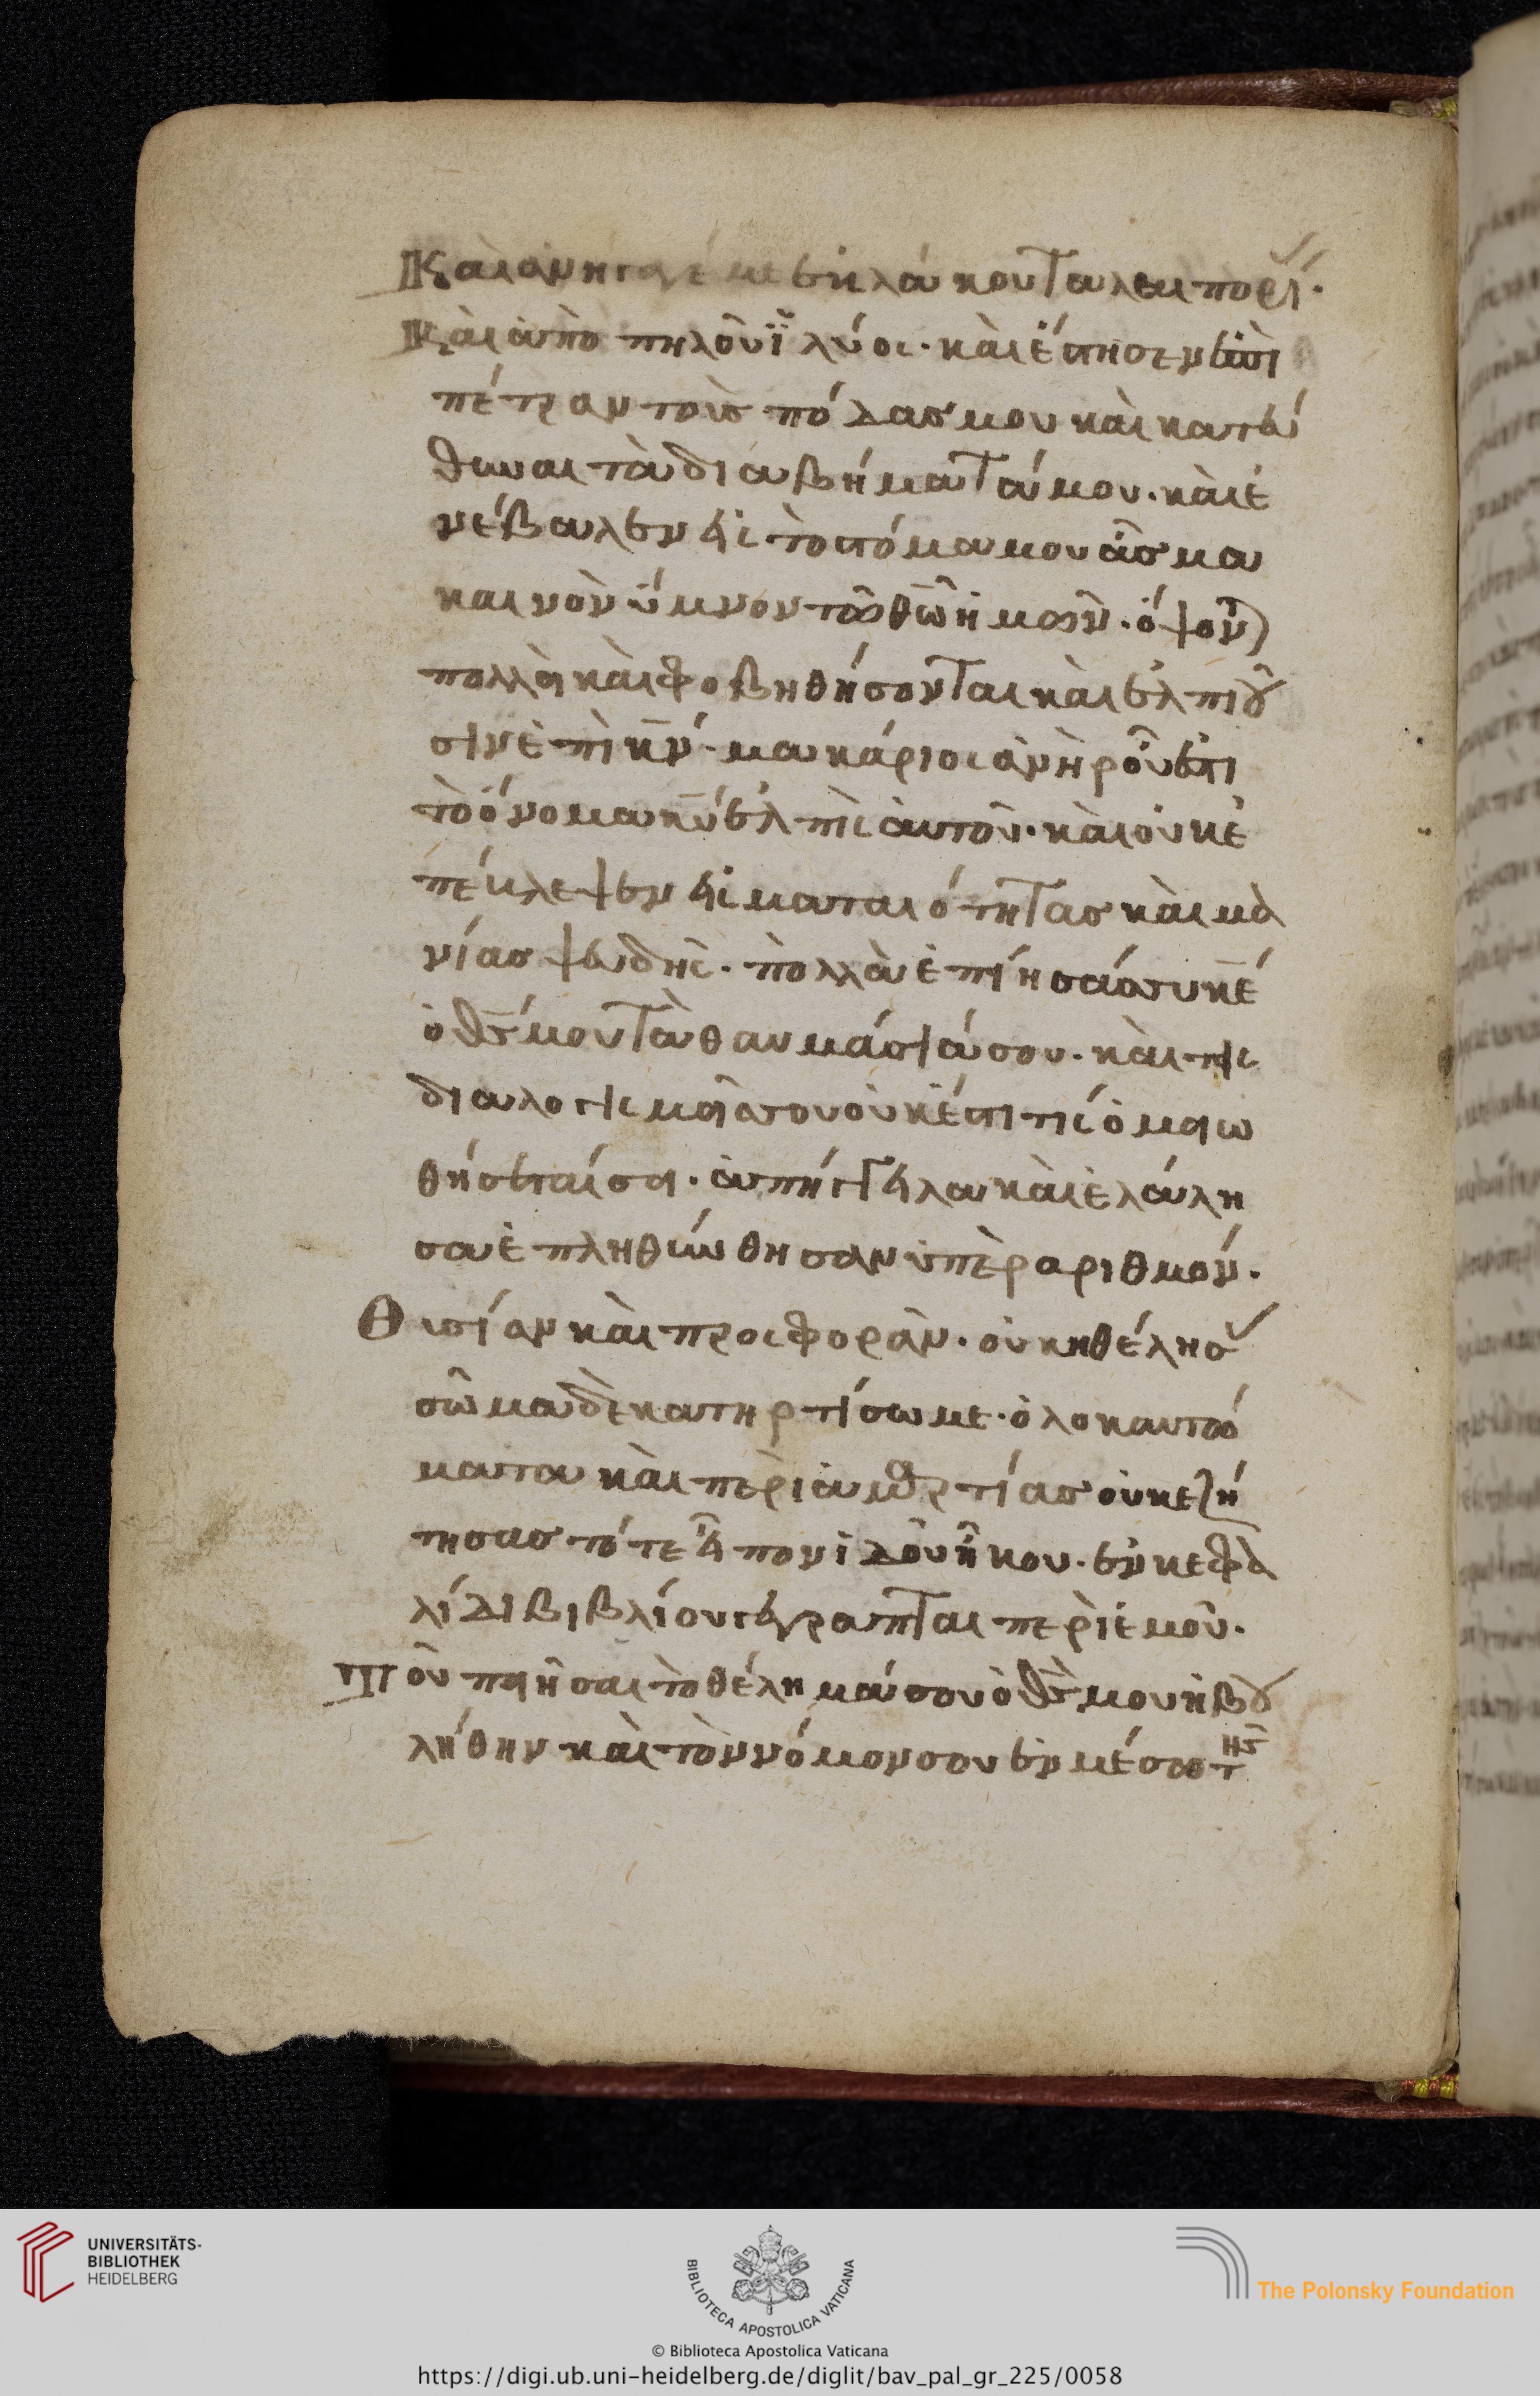 Καὶ ἀνήγαγέ με ἐκ λάκου ταλεπορί·
Καὶ ἀπὸ πηλοῦ ϊλύος· καὶ ἔστησεν ἐπὶ
πέτραν τοὺς πόδας μου καὶ κατεύ
θυναι τὰ διαβήματά μου. καὶ ἐ
νέβαλεν εἰς τὸ στόμα μου ἆσμα
καινὸν ὕμνον τῶ θῶ ἡμῶν. ὄψον
πολλοὶ καὶ φοβηθήσονται καὶ ἐλπιοῦ
σιν ἐπὶ κν. μακάριος ἀνὴρ οὗ ἐστι
τὸ ὄνομα κυ ἐλπὶς αὐτοῦ. καὶ οὐκ ἐ
πέκλεψεν εἰς ματαιότητας καὶ μα
νίας ψευδης. πολλὰ ἐπίησας συ κε
ὁ θς μου τὰ θαυμάσιά σου. καὶ τις
διαλογισμοῖς σου οὐκ ἔστι τις ὁμοιω
θήσεταί σοι. ἀπήγγειλα καὶ ἐλάλη
σα ἐπληθύνθησαν ὑπὲρ αριθμόν.
Θυσίαν καὶ προσφορὰν. οὐκ ηθέλησ
σῶμα δὲ κατηρτίσω με. ὁλοκαυτώ
ματα καὶ περὶ ἁμαρτίας οὐκ εζή
τησας τότε εἶπον ἰδοὺ ἥκου. ἐν κεφα
λίδι βιβλίου γέγραπται περὶ ἐμοῦ.
Τοῦ ποιῆσαι τὸ θέλημά σου ὁ θς μου ἠβου
λήθην καὶ τὸν νόμον σου ἐν μέσω της
UNIVERSITÄTS-
BIBLIOTHEK
HEIDELBERG
BIBLIOTECA APOSTOLICA VATICANA
The Polonsky Foundation
© Biblioteca Apostolica Vaticana
https://digi.ub.uni-heidelberg.de/diglit/bav_pal_gr_225/0058